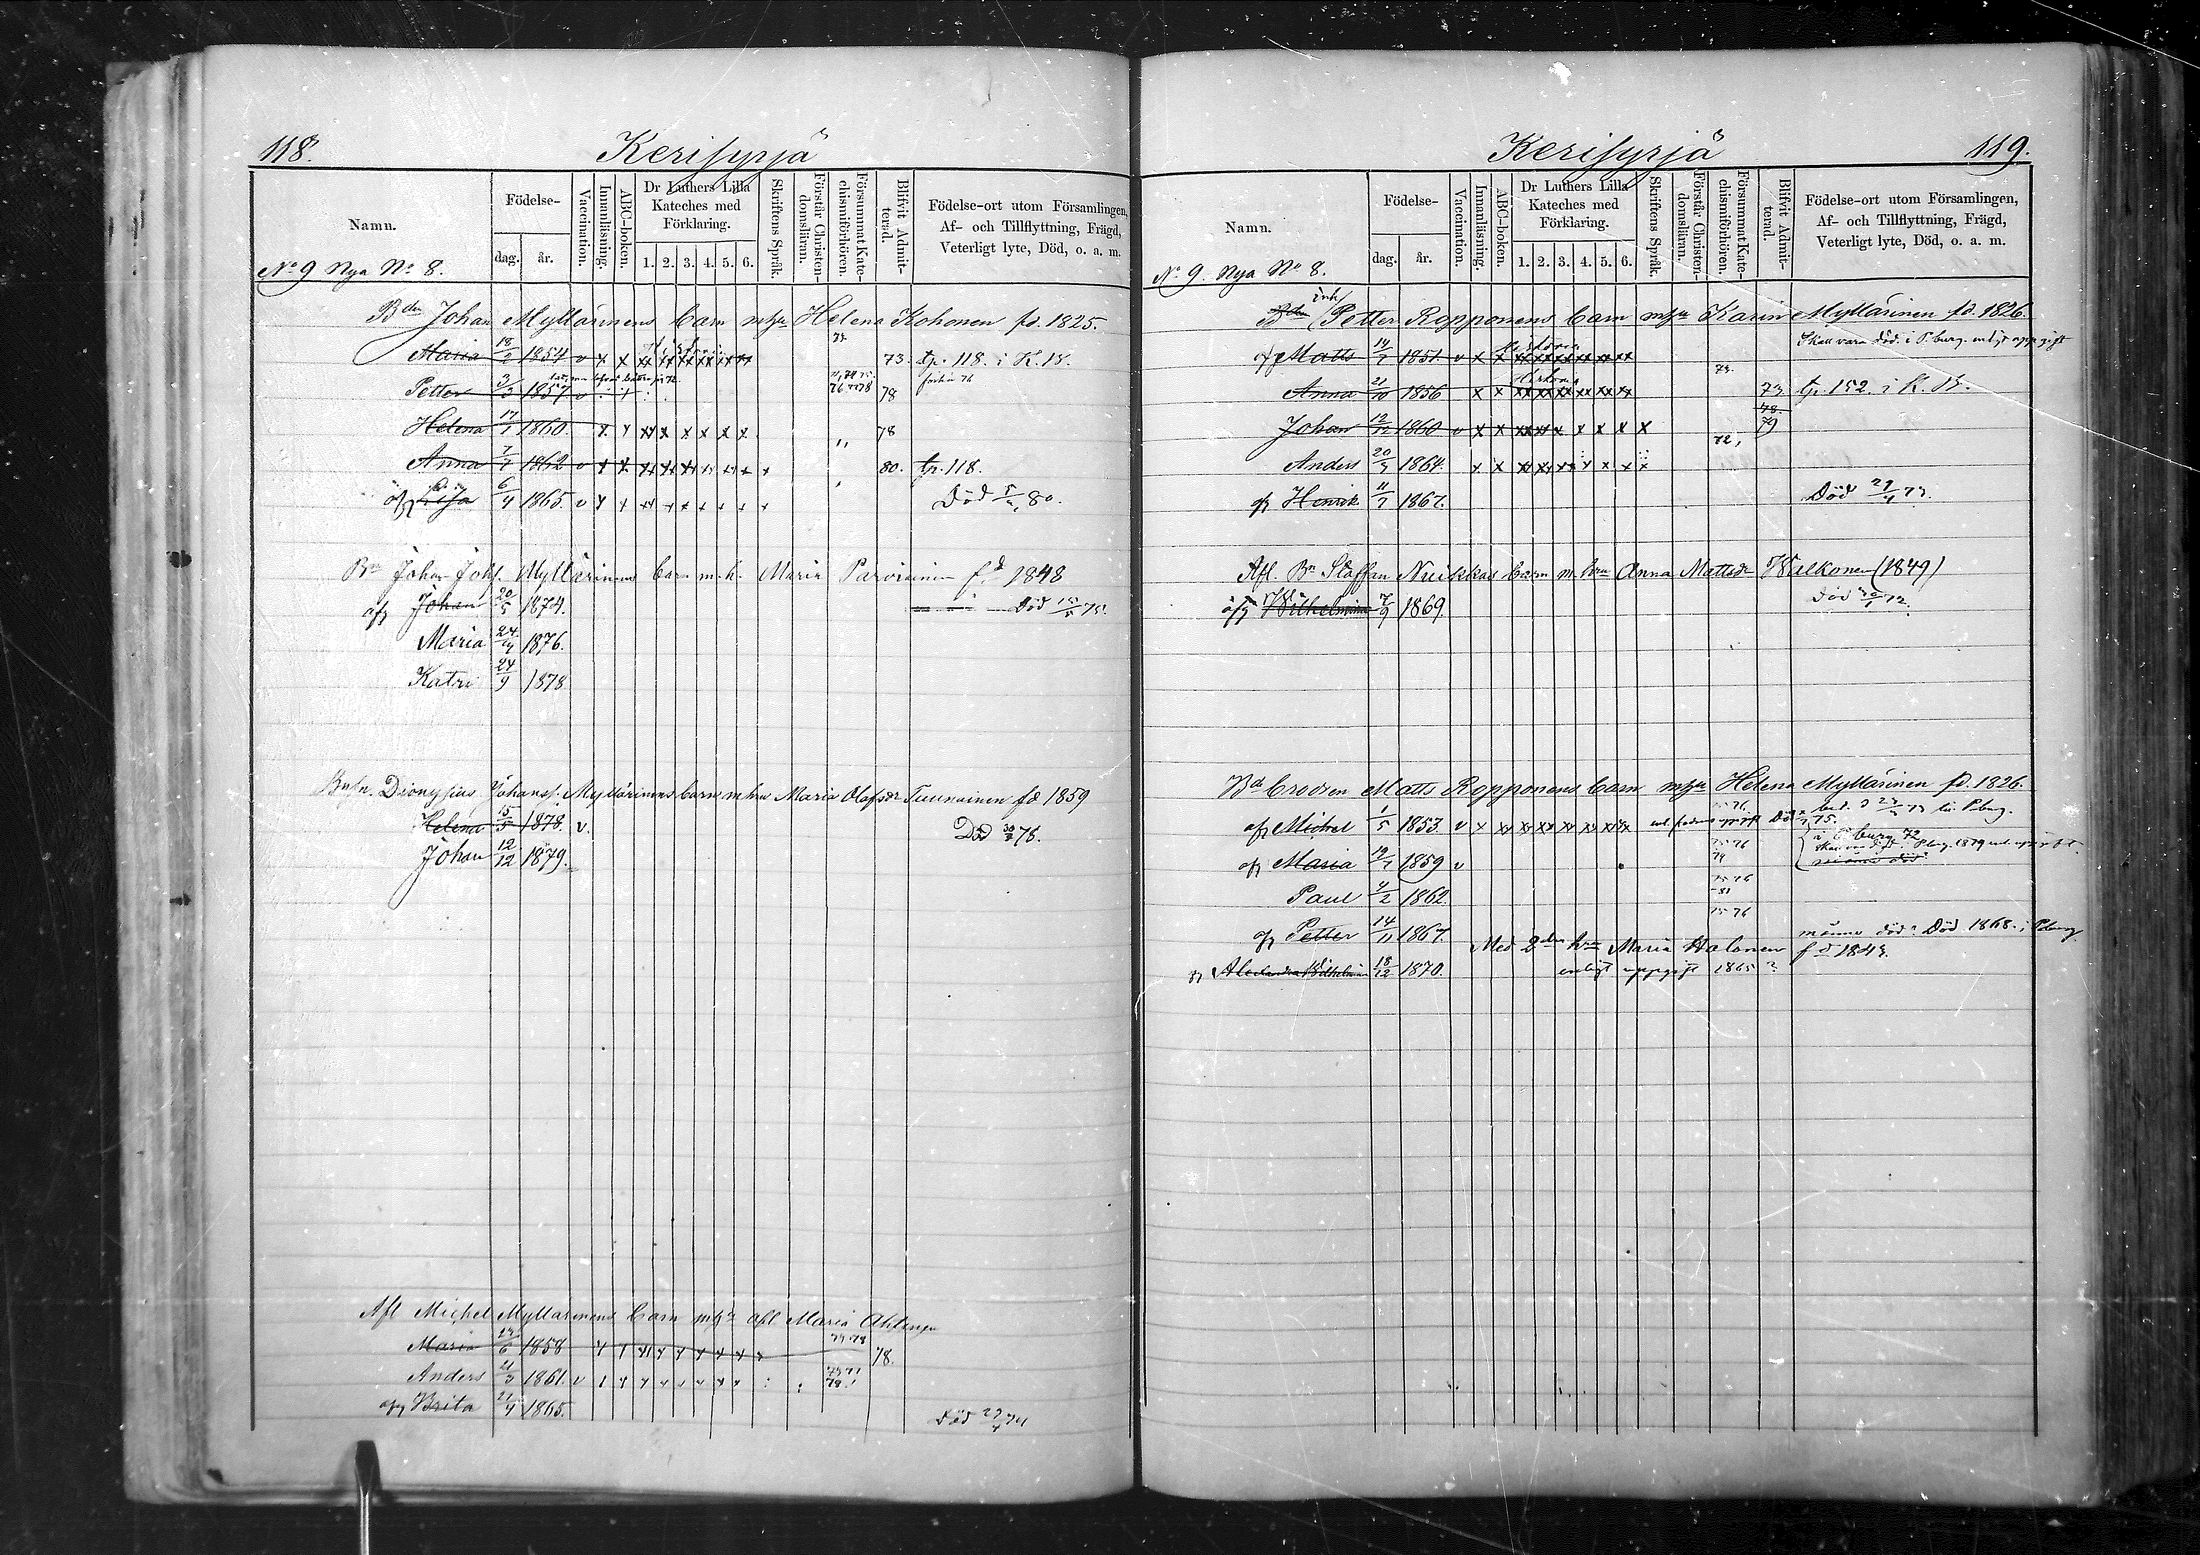 118.
Kerisyrjä
Namn.
Födelse-
dag.
år.
Vaccination.
Innanläsning.
ABC-boken.
Dr Luthers Lilla
Kateches med
Förklaring.
1. 2. 3. 4. 5. 6.
Skriftens Språk.
Förstår Christen-
domsläran.
Försummat Kate-
chismiförhören.
Blifvit Admit-
terad.
Födelse-ort utom Församlingen,
Af- och Tillflyttning, Frägd,
Veterligt lyte, Död, o. a. m.
No 9 Nya No 8.
Bden Johan Myllärinens barn m hu Helena Kohonen fd. 1825.
Maria 18/2 1854 v x x xx xx xx xx xx xx 73. tr. 118. i K. B.
Petter 3/3 1857 v 78
Helena 17/1 1860. x x xx x x x x x 78
Anna 7/7 1862 v x x 80. tr. 118.
afg Lisa 6/4 1865. v x x Död 80.
Bn Johan Johs. Myllärinens barn m. h. Maria Parviainen fd 1848
afg Johan 20/5 1874. Död 75.
Maria 24/4 1876.
Katri 24/9 1878
Dionysius Johanss. Myllärinens barn m hu Maria Olafsdr Tuunainen fd 1859
Helena 15/5 1878. v. Död 78.
Johan 12/12 1879.
Afl Michel Myllärinens barn m hu afl Maria Ahtonen
Maria 6 1858 78.
Anders 21/3 1861. v
afg Brita 21/4 1865. Död 29/4 74
Kerisyrjä
119.
Namn.
Födelse-
dag.
år.
Vaccination.
Innanläsning.
ABC-boken.
Dr Luthers Lilla
Kateches med
Förklaring.
1. 2. 3. 4. 5. 6.
Skriftens Språk.
Förstår Christen-
domsläran.
Försummat Kate-
chismiförhören.
Blifvit Admit-
terad.
Födelse-ort utom Församlingen,
Af- och Tillflyttning, Frägd,
Veterligt lyte, Död, o. a. m.
No 9. Nya No 8.
inh
Bden Petter Ropponens barn m hu Karin Myllärinen fd. 1826.
Skall vara död i P.burg enligt uppgift
Matts 14/7 1851. v x x
Anna 21/10 1856 x x 73 tr. 152. i K. B.
78.
Johan 12/12 1860 v x x 79
72,
Anders 20/9 1864. x x
afg Henrik 11/7 1867. Död
Afl. Bn Staffan Nuikkas barn m. hu Anna Mattsdr Walkonen (1849)
afg Wilhelmina 7/9 1869. Död
Bd brodren Matts Ropponens barn m hu Helena Myllärinen fd. 1826.
afg Michel 1/5 1853. v x Död 75.
afg Maria 19/7 1859 v
Paul 4/2 1862.
afg Petter 14/11 1867. månne död? Död 1868. i P.burg
Med 2dra hu Maria Halonen fd 1843.
Alexandra Wilhelmina 18/12 1870. enligt uppgift 1865?